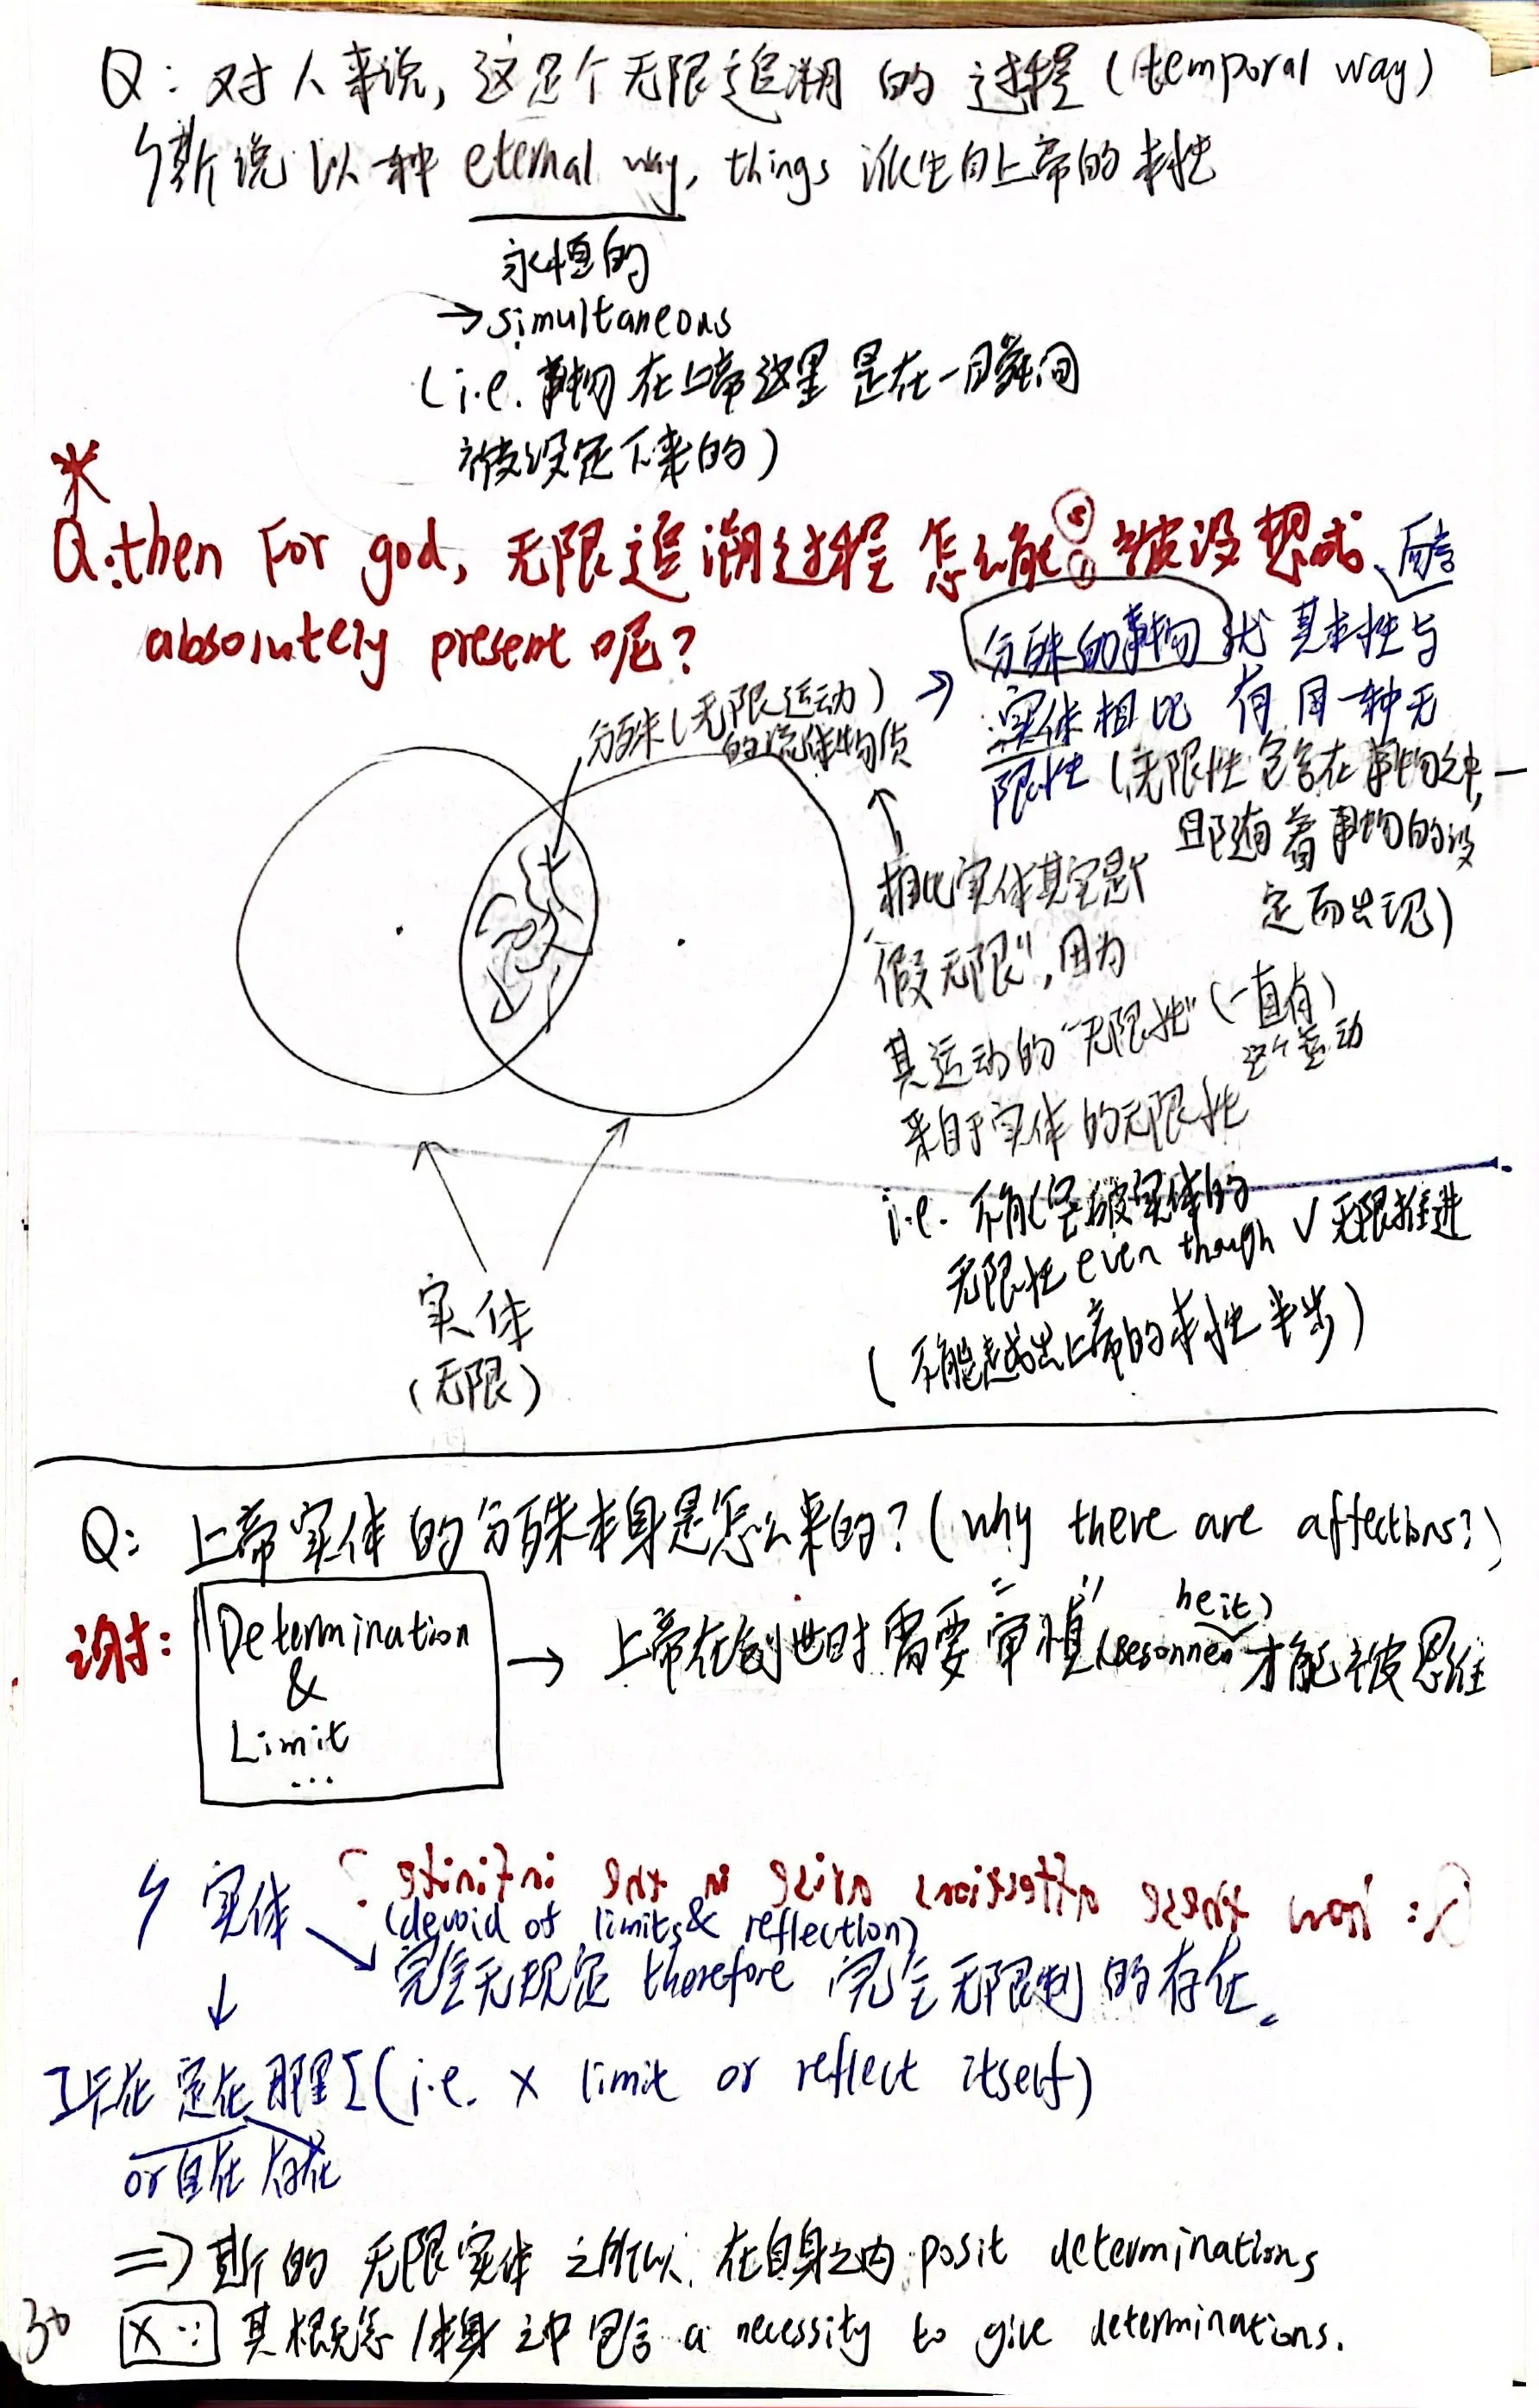 Q: 对人来说, 这是个无限追溯的过程 (temporal way)
斯说以一种 eternal way, things 派生自上帝的本性
永恒的
→ simultaneous
(i.e. 事物在上帝这里是在一瞬间
被设定下来的)
*
Q: then For god, 无限追溯过程怎么能被设想成
absolutely present 呢?
分殊的事物就其本性与
实体相比 有同一种无
限性 (无限性包含在事物之中,
且随着事物的设
定而出现)
分殊 (无限运动)
的流体物质
相比实体其实是个
"假无限", 因为
其运动的 "无限性" (一直有)
这个运动
来自于实体的无限性
i.e. 不能突破实体的
无限性 even though √ 无限推进
(不能越出上帝的本性半步)
实体
(无限)
Q: 上帝实体的分殊本身是怎么来的? (why there are affections?)
谢:
Determination
&
Limit
...
→ 上帝在创世时需要 "审慎" (Besonnenheit) 才能被思维
Q: how these affections arise in the infinite?
实体
(devoid of limits & reflection)
完全无规定 therefore 完全无限制的存在。
↓
只在 定在 那里 (i.e. × limit or reflect itself)
or 自在存在
=> 斯的 无限实体 之所以 在自身之内 posit determinations
× ∵ 其概念本身之中包含 a necessity to give determinations.
30